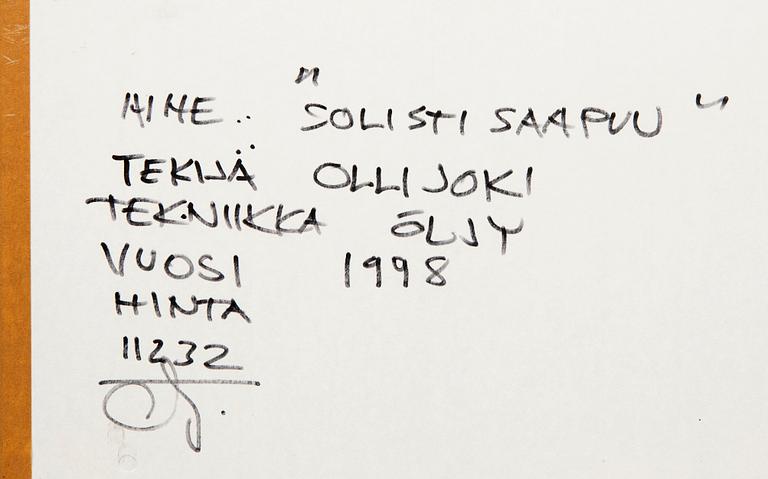 AIHE.. "SOLISTI SAAPUU"
TEKIJÄ OLLI JOKI
TEKNIIKKA ÖLJY
VUOSI 1998
HINTA
11232